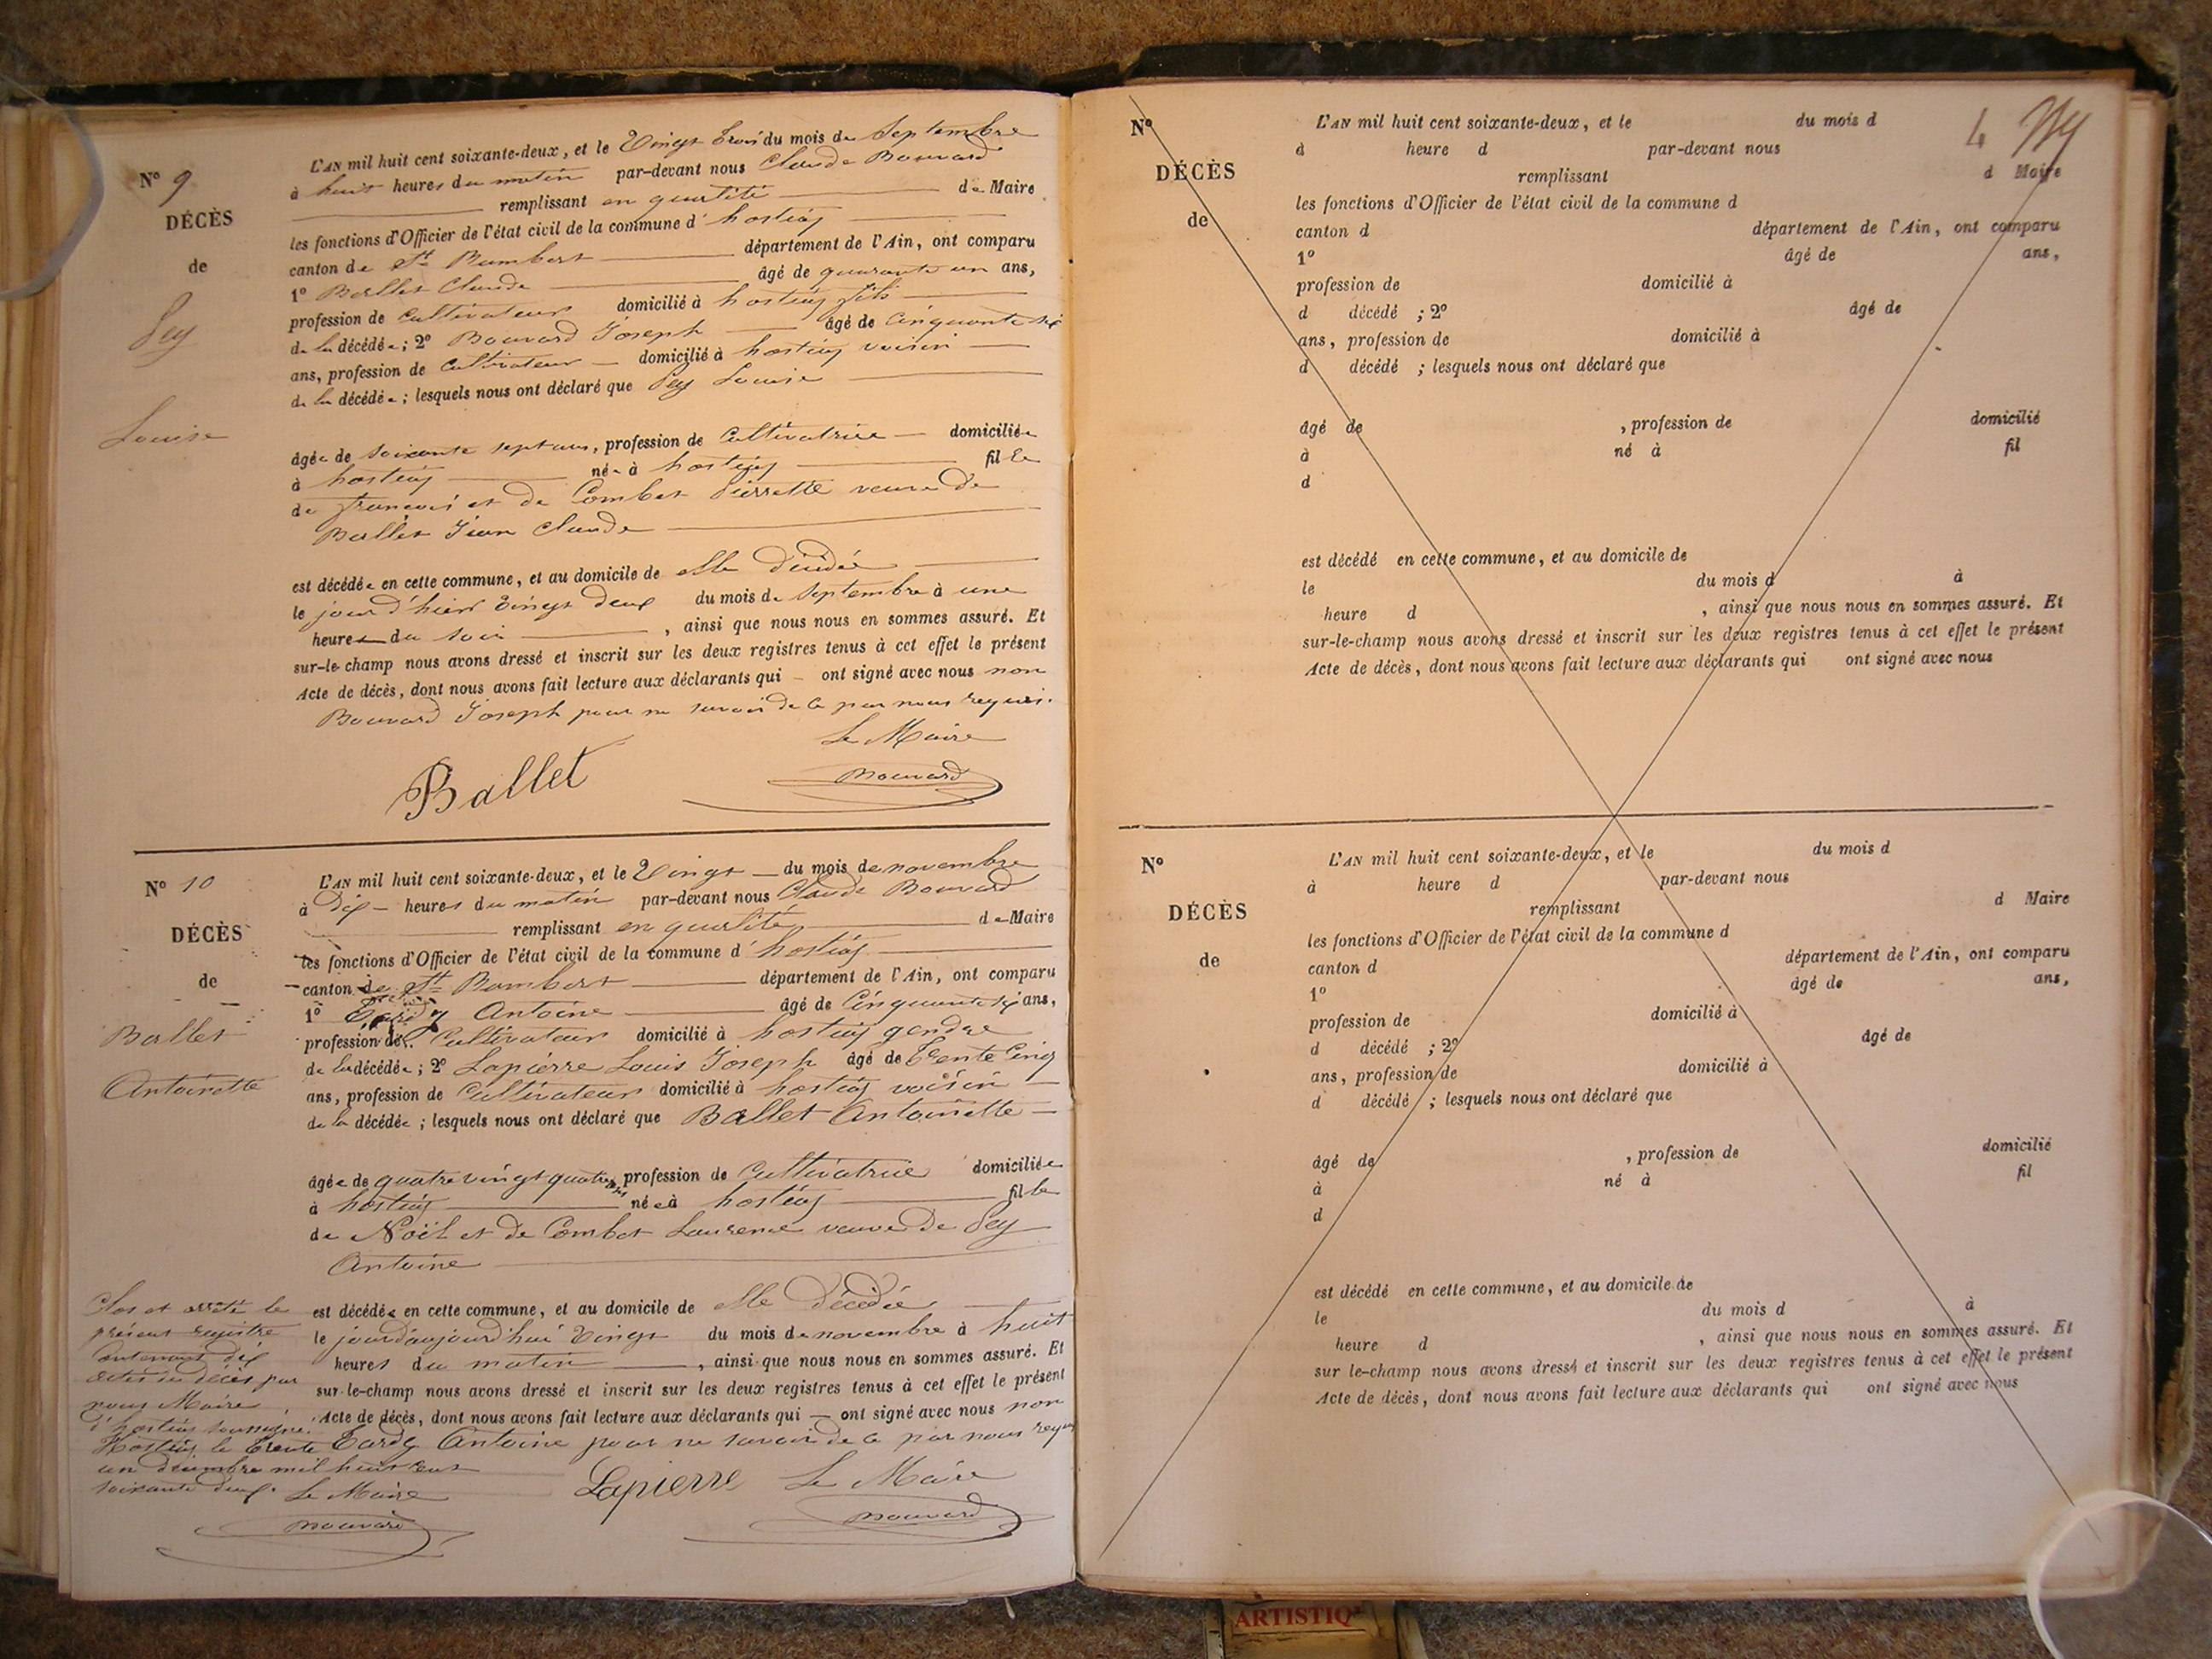 N° 9
DÉCÈS
de
Pey
Louise
L'AN mil huit cent soixante-deux, et le Vingt trois du mois de Septembre
à huit heures du matin par-devant nous Claude Bouvard
remplissant en qualité de Maire
les fonctions d'Officier de l'état civil de la commune d'hostiaz
canton de St Rambert département de l'Ain, ont comparu
1° Ballet Claude âgé de quarante un ans,
profession de Cultivateur domicilié à hostiaz fils
de la décédée; 2° Bouvard Joseph âgé de Cinquante six
ans, profession de Cultivateur domicilié à hostiaz voisin
de la décédée; lesquels nous ont déclaré que Pey Louise
âgée de soixante sept ans, profession de Cultivatrice domiciliée
à hostiaz née à hostiaz fille
de francois et de Combet Pierrette veuve de
Ballet Jean Claude
est décédée en cette commune, et au domicile de elle décédée
le jour d'hier Vingt deux du mois de Septembre à une
heure du soir, ainsi que nous nous en sommes assuré. Et
sur-le-champ nous avons dressé et inscrit sur les deux registres tenus à cet effet le présent
Acte de décès, dont nous avons fait lecture aux déclarants qui ont signé avec nous non
Bouvard Joseph pour ne savoir de ce par nous requis.
Le Maire
Ballet Bouvard
N° 10
DÉCÈS
de
Ballet
Antoinette
L'AN mil huit cent soixante-deux, et le Vingt du mois de novembre
à dix heures du matin par-devant nous Claude Bouvard
remplissant en qualité de Maire
les fonctions d'Officier de l'état civil de la commune d'hostiaz
canton de St Rambert département de l'Ain, ont comparu
1° Tardy Antoine âgé de Cinquante six ans,
profession de Cultivateur domicilié à hostiaz gendre
de la décédée; 2° Lapierre Louis Joseph âgé de trente Cinq
ans, profession de Cultivateur domicilié à hostiaz voisin
de la décédée; lesquels nous ont déclaré que Ballet Antoinette
âgée de quatre vingt quatre ans profession de Cultivatrice domiciliée
à hostiaz née à hostiaz fille
de Noël et de Combet Laurence veuve de Pey
Antoine
est décédée en cette commune, et au domicile de elle décédée
le jourd'aujourd'hui Vingt du mois de novembre à huit
heures du matin, ainsi que nous nous en sommes assuré. Et
sur-le-champ nous avons dressé et inscrit sur les deux registres tenus à cet effet le présent
Acte de décès, dont nous avons fait lecture aux déclarants qui ont signé avec nous non
Tardy Antoine pour ne savoir de ce par nous requis
Lapierre Le Maire
Bouvard
Clos et arrêté le
présent registre
Contenant dix
actes de décès par
nous Maire
d'hostiaz soussigné.
Hostiaz le trente
un décembre mil huit cent
soixante deux. Le Maire
Bouvard
4
N°
DÉCÈS
de
L'AN mil huit cent soixante-deux, et le du mois d
à heure d par-devant nous
remplissant d Maire
les fonctions d'Officier de l'état civil de la commune d
canton d département de l'Ain, ont comparu
1° âgé de ans,
profession de domicilié à
d décédé ; 2° âgé de
ans, profession de domicilié à
d décédé ; lesquels nous ont déclaré que
âgé de , profession de domicilié
à né à fil
d
est décédé en cette commune, et au domicile de
le du mois d à
heure d , ainsi que nous nous en sommes assuré. Et
sur-le-champ nous avons dressé et inscrit sur les deux registres tenus à cet effet le présent
Acte de décès, dont nous avons fait lecture aux déclarants qui ont signé avec nous
N°
DÉCÈS
de
L'AN mil huit cent soixante-deux, et le du mois d
à heure d par-devant nous
remplissant d Maire
les fonctions d'Officier de l'état civil de la commune d
canton d département de l'Ain, ont comparu
1° âgé de ans,
profession de domicilié à
d décédé ; 2° âgé de
ans, profession de domicilié à
d décédé ; lesquels nous ont déclaré que
âgé de , profession de domicilié
à né à fil
d
est décédé en cette commune, et au domicile de
le du mois d à
heure d , ainsi que nous nous en sommes assuré. Et
sur le-champ nous avons dressé et inscrit sur les deux registres tenus à cet effet le présent
Acte de décès, dont nous avons fait lecture aux déclarants qui ont signé avec nous
ARTISTIQ